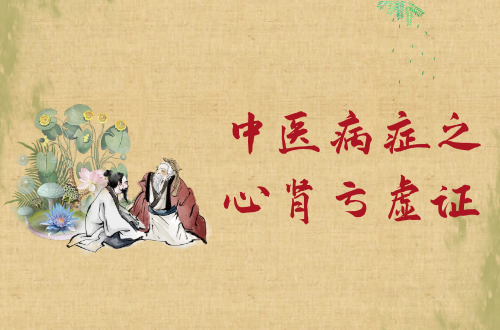 中医病症之
心肾亏虚证